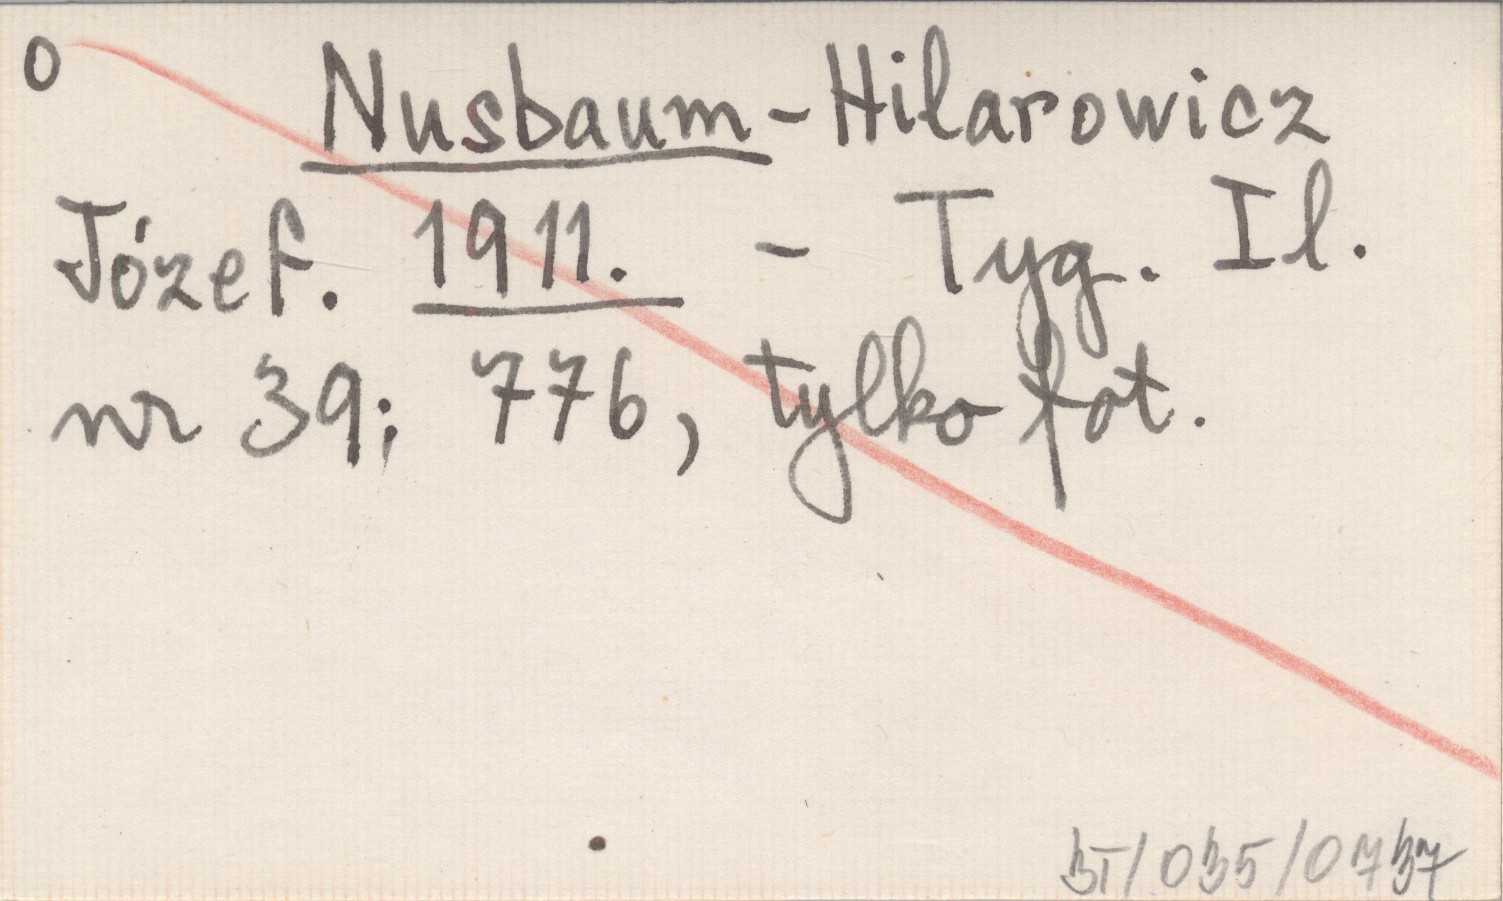 o
Nusbaum-Hilarowicz
Józef. 1911. - Tyg. Il.
nr 39; 776, tylko fot.
3I/035/0737